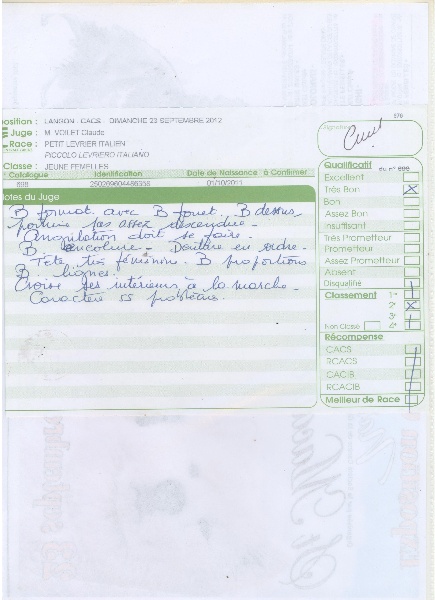 678
osition : LANGON - CACS - DIMANCHE 23 SEPTEMBRE 2012
Signature
Juge : M. VOILET Claude
Race : PETIT LEVRIER ITALIEN
PICCOLO LEVRIERO ITALIANO
Classe : JEUNE FEMELLES
Catalogue Identification Date de Naissance à Confirmer
698 01/10/2011
Notes du Juge
B format avec B fouet. B dessus
poitrine pas assez descendue.
Angulation doit se faire.
B encolure - Denture en ordre.
Tête très féminine. B proportions
B lignes.
Croise les intérieurs à la marche.
Caractère ss problème.
Qualificatif du n° 698
Excellent
Très Bon X
Bon
Assez Bon
Insuffisant
Très Prometteur
Prometteur
Assez Prometteur
Absent
Disqualifié
Classement 1er
2e X
3e
Non Classé 4e
Récompense
CACS
RCACS
CACIB
RCACIB
Meilleur de Race